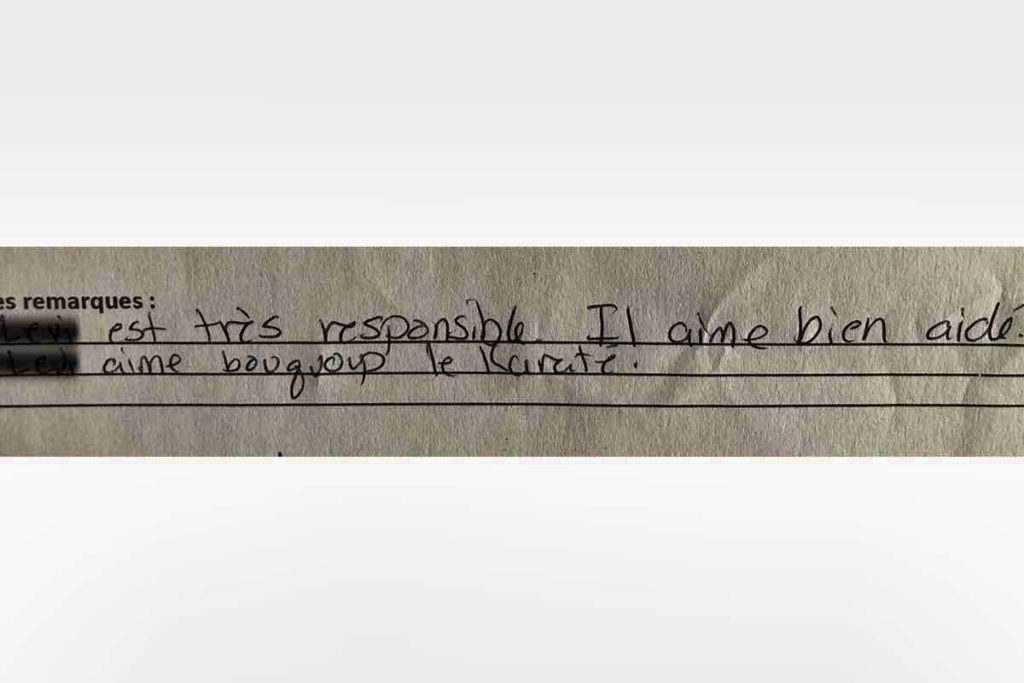 es remarques :
Levi est très responsible. Il aime bien aidé.
Levi aime bouquoup le Karaté.